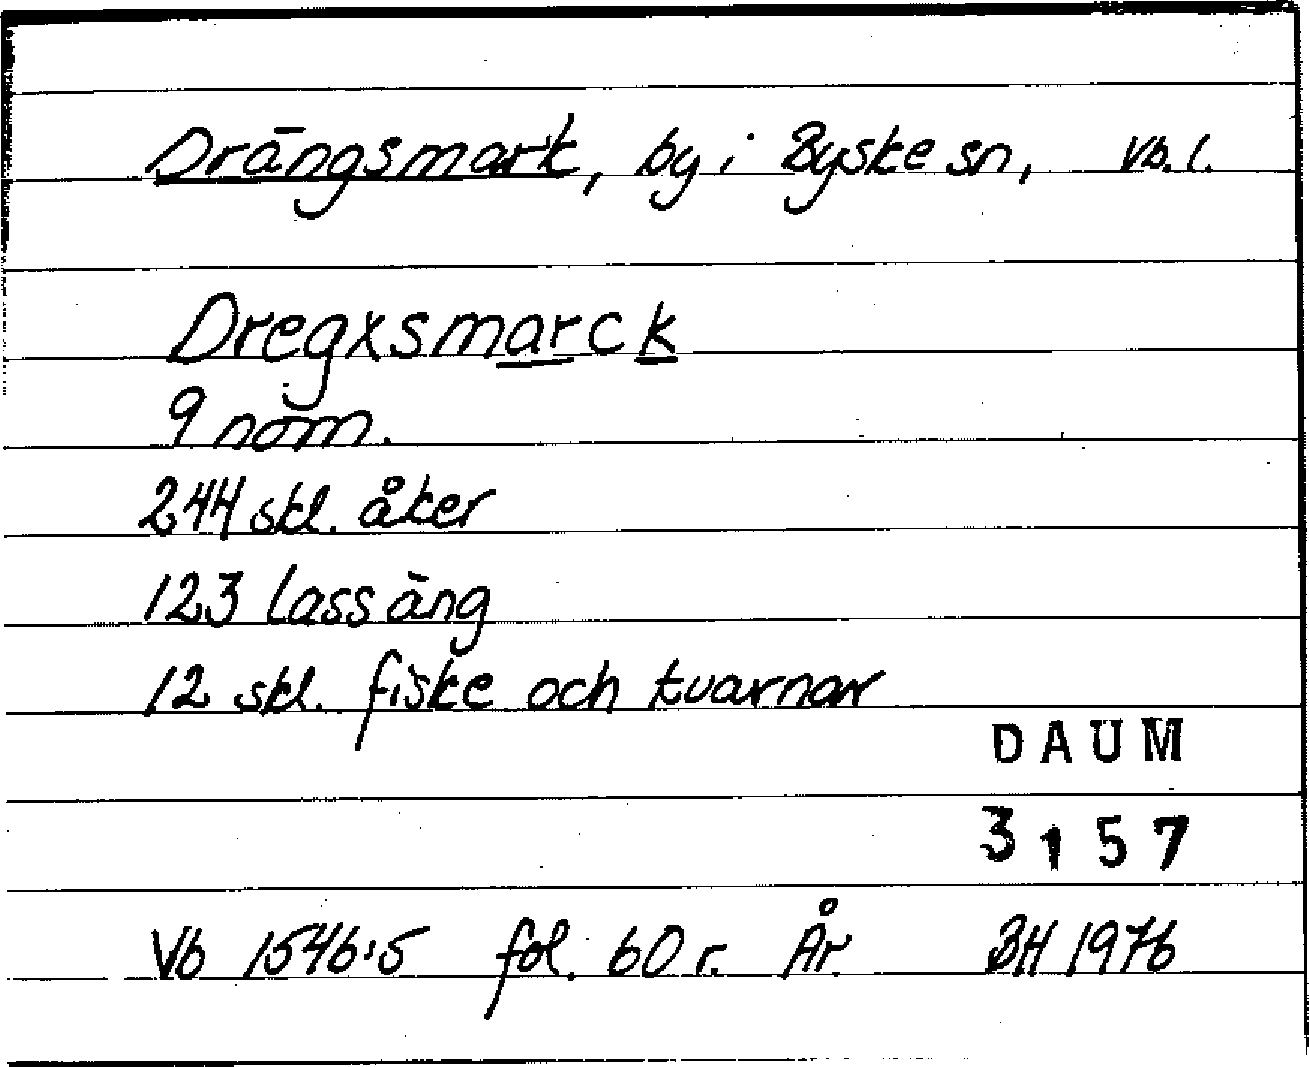 Drängsmark, by i Byske sn, Vb. l.
Dregxsmarck
9 nom.
244 skl. åker
123 lass äng
12 skl. fiske och kvarnar
DAUM
3157
Vb 1546:5 fol. 60 r. År. BH 1976